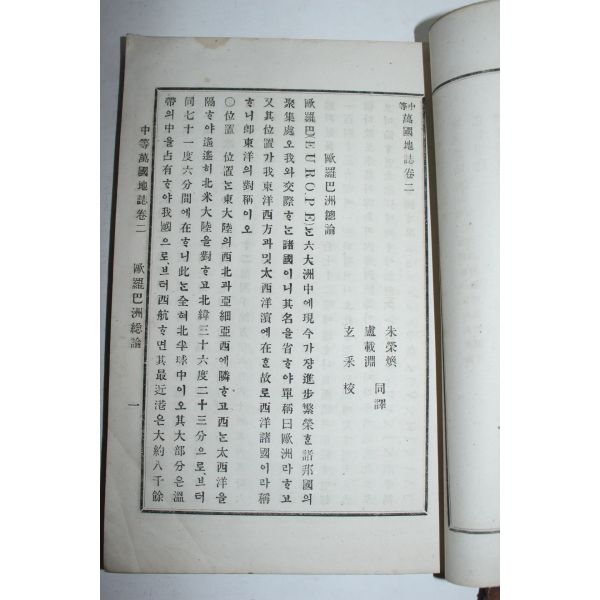 中等萬國地誌卷二
朱榮煥
盧載淵 同譯
玄采 校
歐羅巴洲總論
歐羅巴(EUROPE)ᄂᆞᆫ六大洲中에現今가쟝進步繁榮ᄒᆞᆫ諸邦國의
聚集處오我와交際ᄒᆞᄂᆞᆫ諸國이니其名을省ᄒᆞ야單稱曰歐洲라ᄒᆞ고
又其位置가我東洋西方과밋太西洋濱에在ᄒᆞᆫ故로西洋諸國이라稱
ᄒᆞ니卽東洋의對稱이오
○位置 位置ᄂᆞᆫ東大陸의西北과亞細亞西에隣ᄒᆞ고西ᄂᆞᆫ太西洋을
隔ᄒᆞ야遙遙히北米大陸을對ᄒᆞ고北緯三十六度二十三分으로브터
同七十一度六分間에在ᄒᆞ니此ᄂᆞᆫ全혀北半球中이오其大部分은溫
帶의中을占有ᄒᆞ야我國으로브터西航ᄒᆞ면其最近港은大約八千餘
中等萬國地誌卷二 歐羅巴洲總論 一